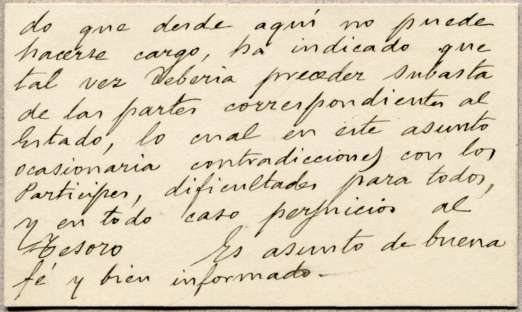 do que desde aquí no puede
hacerse cargo, ha indicado que
tal vez deberia preceder subasta
de las partes correspondientes al
Estado, lo cual en este asunto
ocasionaria contradicciones con los
Participes, dificultades para todos,
y en todo caso perjuicios al
Tesoro Es asunto de buena
fé y bien informado.-